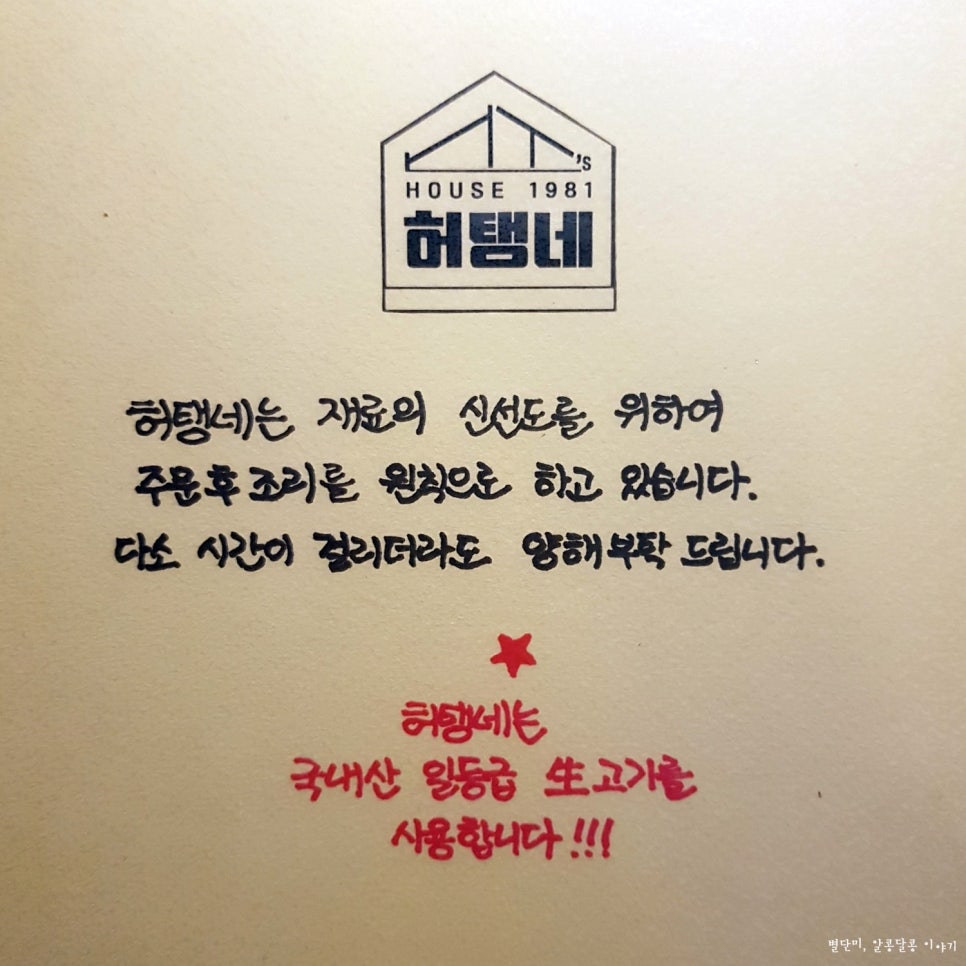 's
HOUSE 1981
허탱네
허탱네는 재료의 신선도를 위하여
주문후 조리를 원칙으로 하고 있습니다.
다소 시간이 걸리더라도 양해부탁 드립니다.
허탱네는
국내산 일등급 生고기를
사용합니다!!!
별단미, 알콩달콩 이야기